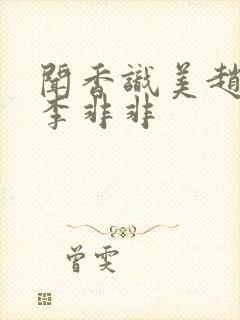 聞香識美趙
李非非
曾雯